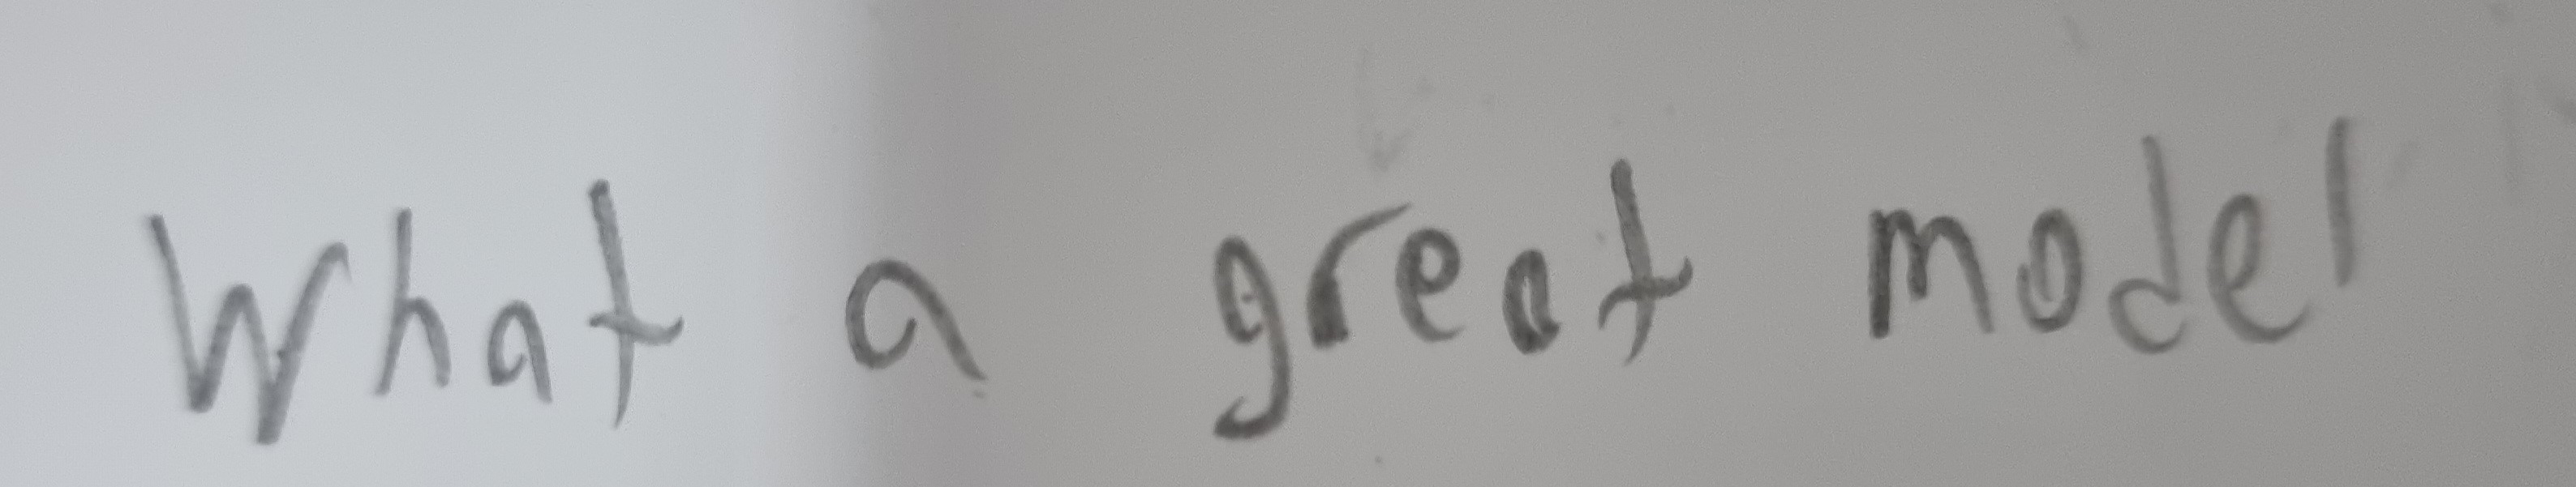 What a great model